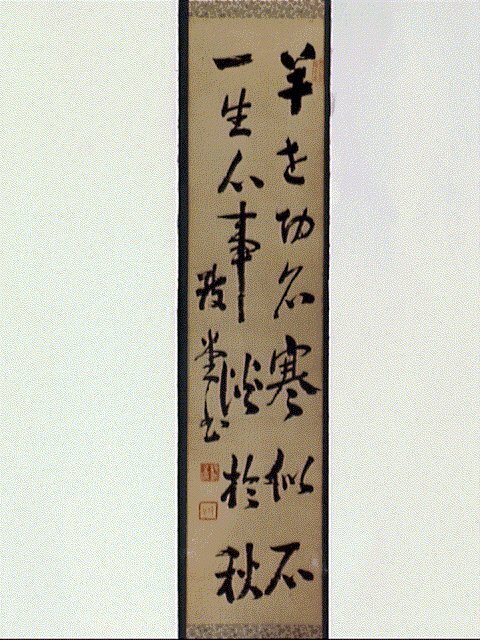 半世功名寒似石
一生心事淡於秋